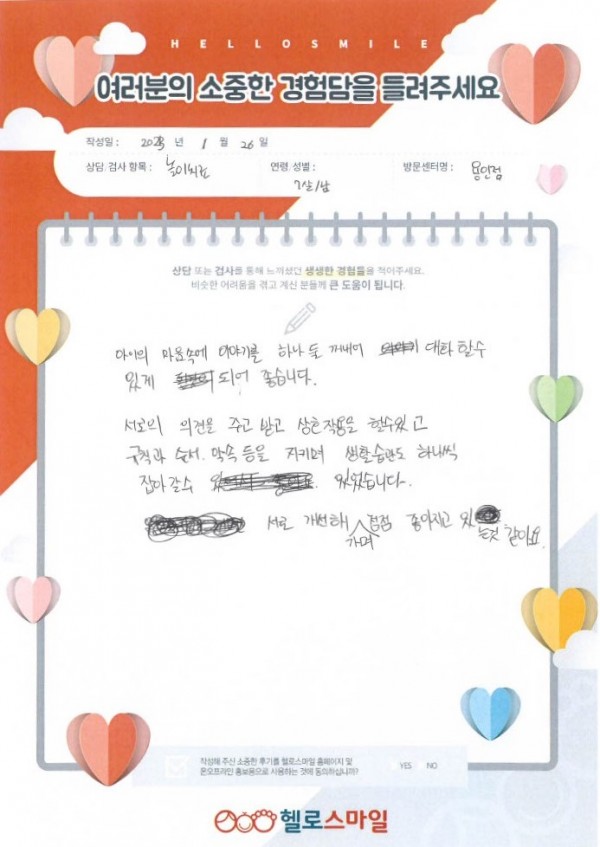 HELLOSMILE
여러분의 소중한 경험담을 들려주세요
작성일 : 2023 년 1 월 26 일
상담, 검사 항목 : 놀이치료 연령, 성별 : 7살/남 방문센터명 : 용인점
상담 또는 검사를 통해 느끼셨던 생생한 경험들을 적어주세요.
비슷한 어려움을 겪고 계신 분들께 큰 도움이 됩니다.
아이의 마음속에 이야기를 하나 둘 꺼내어 대화 할수
있게 되어 좋습니다.
서로의 의견을 주고 받고 상호작용을 할수있고
규칙과 순서, 약속 등을 지키며 생활습관도 하나씩
잡아갈수 있었습니다.
서로 개선해 가며 점점 좋아지고 있는것 같아요.
작성해 주신 소중한 후기를 헬로스마일 홈페이지 및
온오프라인 홍보용으로 사용하는 것에 동의하십니까?
YES NO
헬로스마일